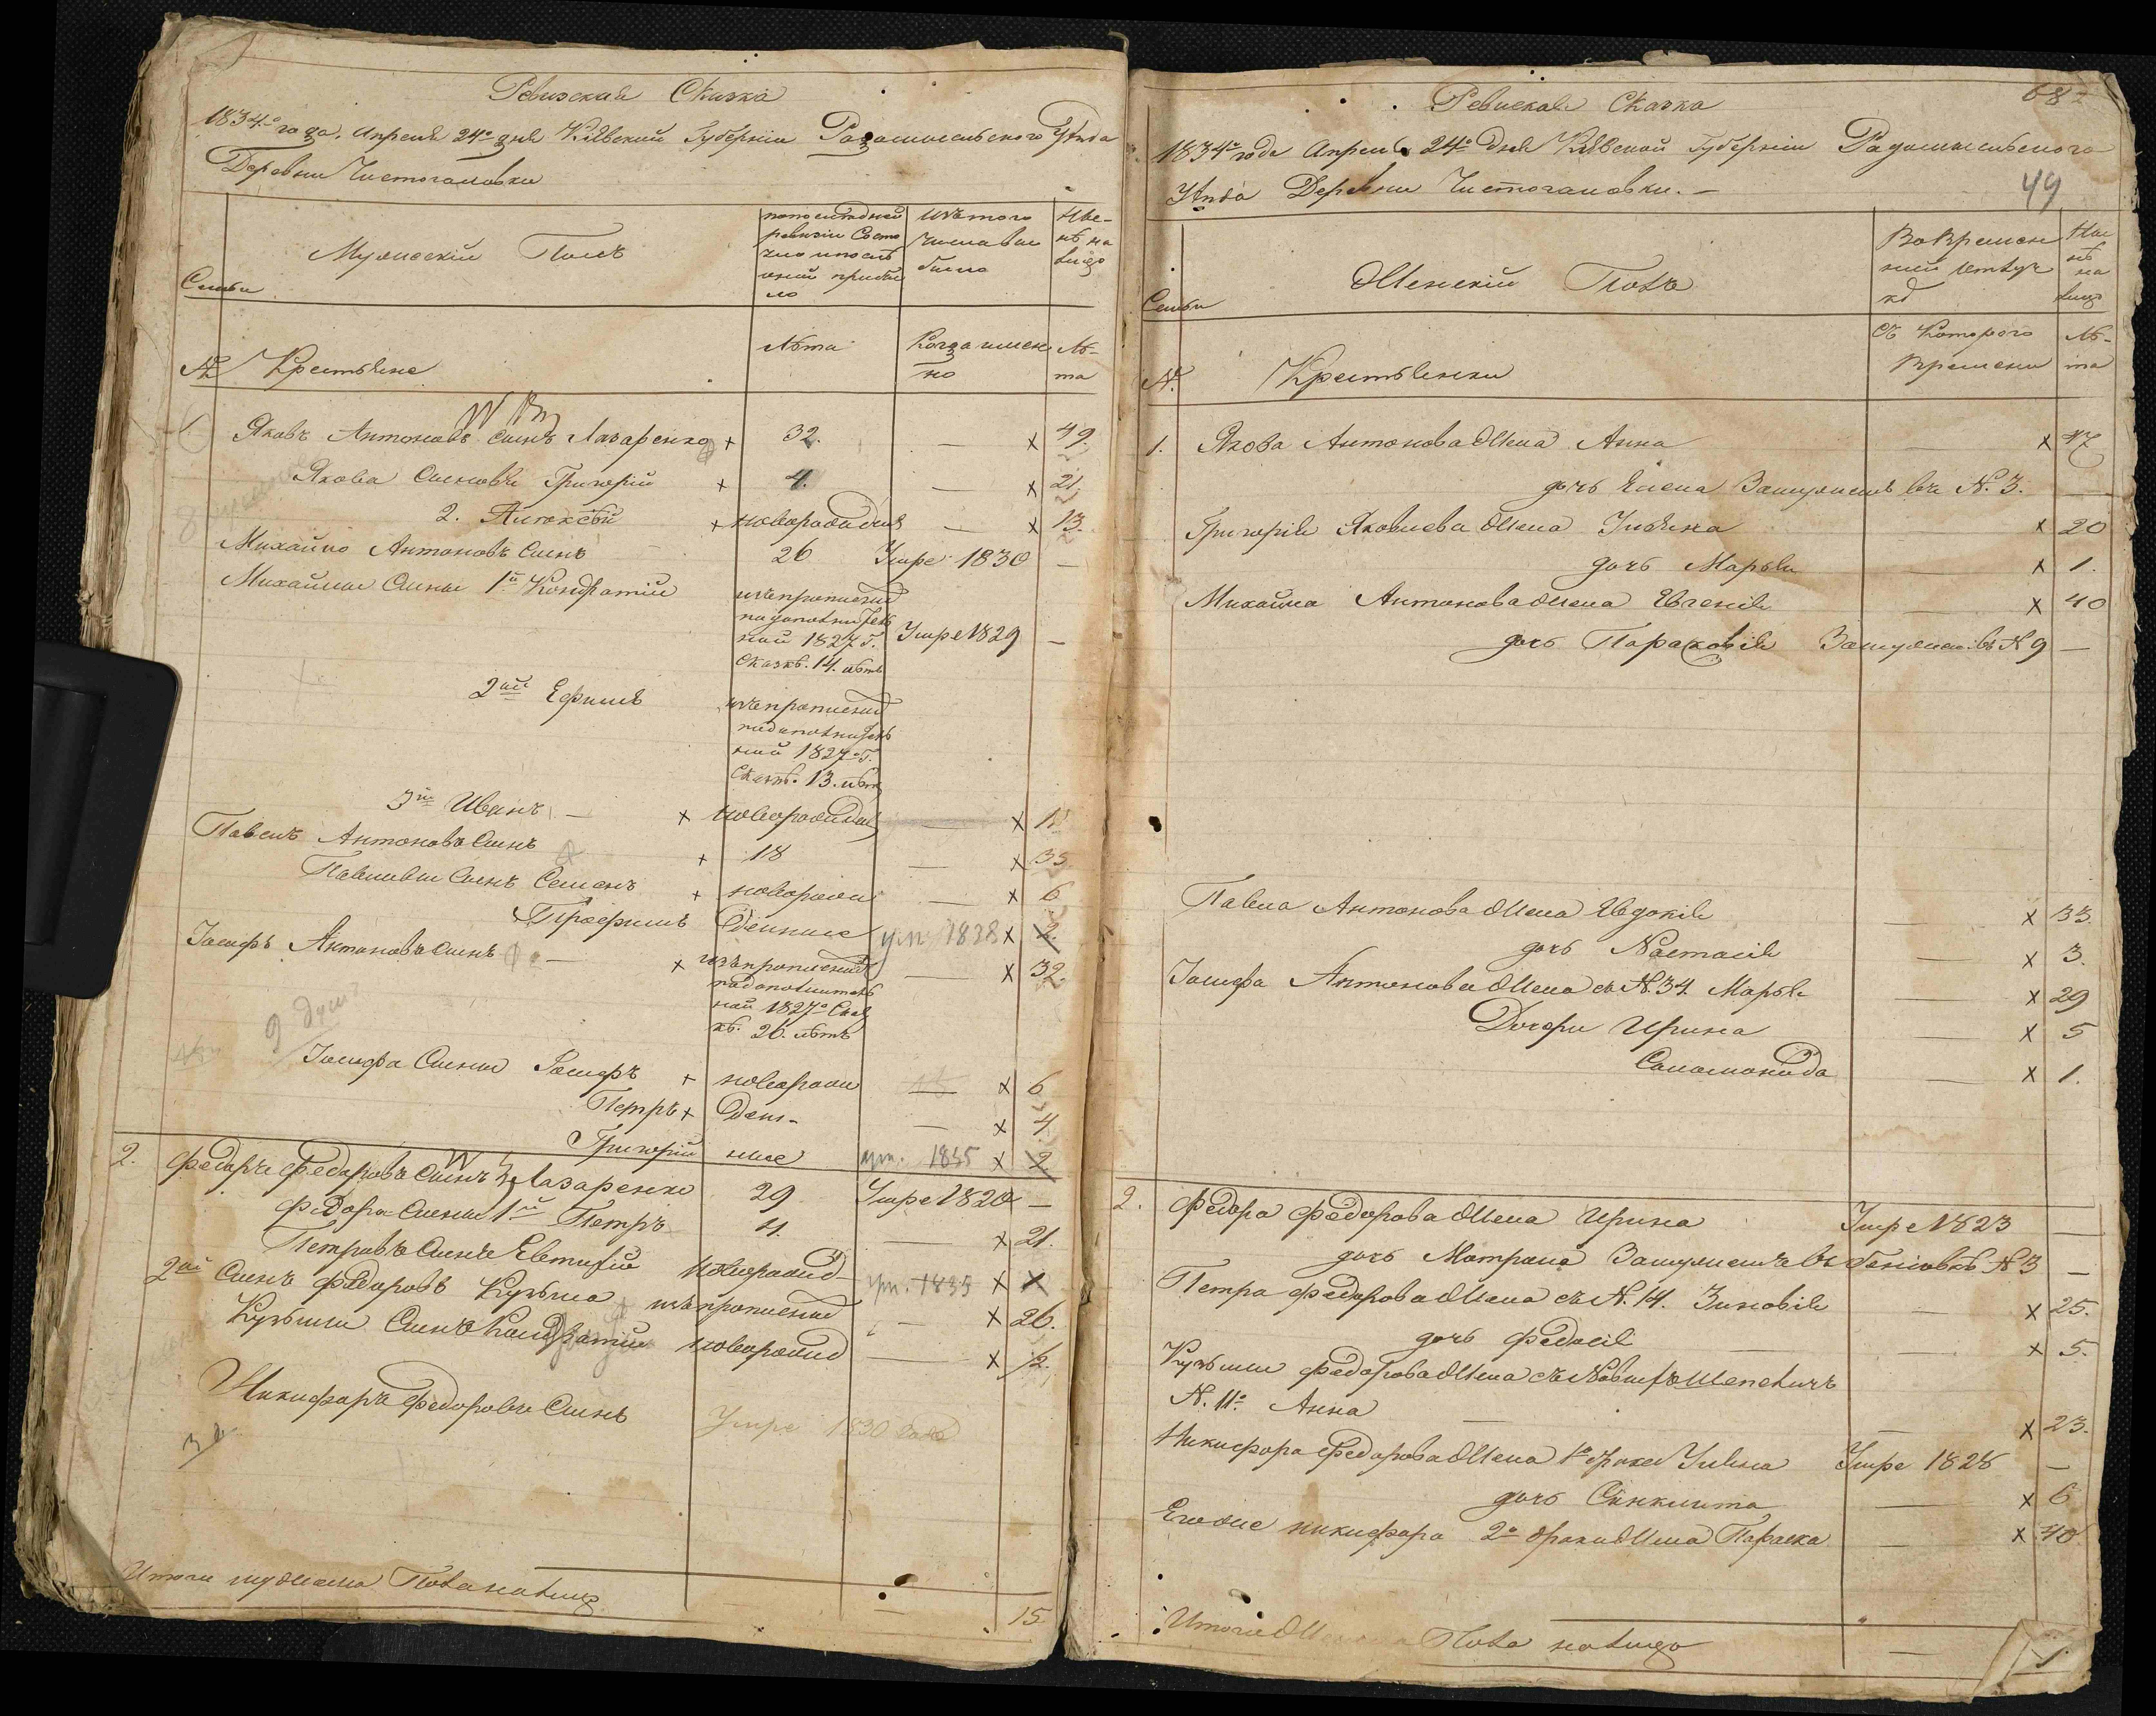 Ревизская Сказка
1834го года. Апреля 24го дня Кіевской Губерніи Радомысльского Уѣзда
Деревни Чистогаловки
Мужескій Полъ
по последней
ревизіи Состо
яло и послѣ
оной прибы
ло
Изъ того
числа вы
было
Ны-
нѣ на
лицо
Семьи
№ Крестьяне
Лѣта
Когда имен
но
Лѣ-
та
Яковъ Антоновъ сынъ Лазаренко + 32. — x 49.
Якова Сыновья Григорій + 4. — x 21.
2. Алексѣй + новорожден — x 13.
Михайло Антоновъ Сынъ 26 Умре 1830 —
Михайлы Сыны 1й Кондратій
изъ прописной
по дополнитель
ной 1827 г.
Сказкѣ. 14. лѣтъ
Умре 1829 —
2ой Ефимъ
изъ прописной
по дополнитель
ной 1827 г.
Сказкѣ. 13. лѣтъ
3й Иванъ — + новорожден — x
Павелъ Антоновъ Сынъ + 18 — x 35
Павловъ Сынъ Семенъ + новорож — x 6
Трофимъ денные ум. 1838 x 2.
Іосифъ Антоновъ Сынъ — + изъ прописной — x 32.
по дополнитель
ной 1827го Сказ
кѣ. 26. лѣтъ
9 душ
Іосифа Сыны Іосифъ + новорож — x 6
Петръ + ден- — x 4
Григорій ные ум. 1835 x 2
2. Федоръ Федоровъ Сынъ Лазаренко 29 Умре 1820 —
Федора Сыны 1й Петръ 4. — x 21.
Петровъ Сынъ Евтифій новорожд- ум. 1835 x 1
2ой Сынъ Федоровъ Кузьма изъ прописной — x 26.
Кузьмы Сынъ Кондратій новорожд — x 1/2.
Никифоръ Федоровъ Сынъ Умре 1830 года
Итого мужеска Пола на лицо — 15.
682
Ревиская Сказка
1834го года Апреля 24го дня Кіевской Губерніи Радомысльского
Уѣзда Деревни Чистогаловки. —
49
Женскій Полъ
Во времен
ной отлуч
кѣ
Ны
нѣ
на
лицо
Семьи
№. Крестьянки
Съ которого
времени
Лѣ-
та
1. Якова Антонова Жена Анна — x 47
дочь Елена Замужемъ въ №. 3. —
Григорія Яковлева Жена Ульяна x 20
дочь Марья — x 1.
Михайла Антонова Жена Евгенія — x 40
дочь Параковія Замужемъ въ № 9 —
Павла Антонова Жена Евдокія — x 33.
дочь Настасія — x 3.
Іосифа Антонова Жена съ №. 34 Марья — x 29
Дочери Ирина — x 5
Саломонида — x 1.
2. Федора Федорова Жена Ирина Умре 1823 —
дочь Матрона Замужемъ въ № 3 —
Петра Федорова Жена съ №. 14. Зиновія — x 25.
дочь Федосія — x 5.
Кузьмы Федорова Жена съ Шепеличъ
№. 11го Анна — x 23.
Никифора Федорова Жена 1го брака Ульяна Умре 1828 —
дочь Синклита — x 6
Его же Никифора 2го брака Жена Параска — x 40
Итого Женска Пола на лицо —